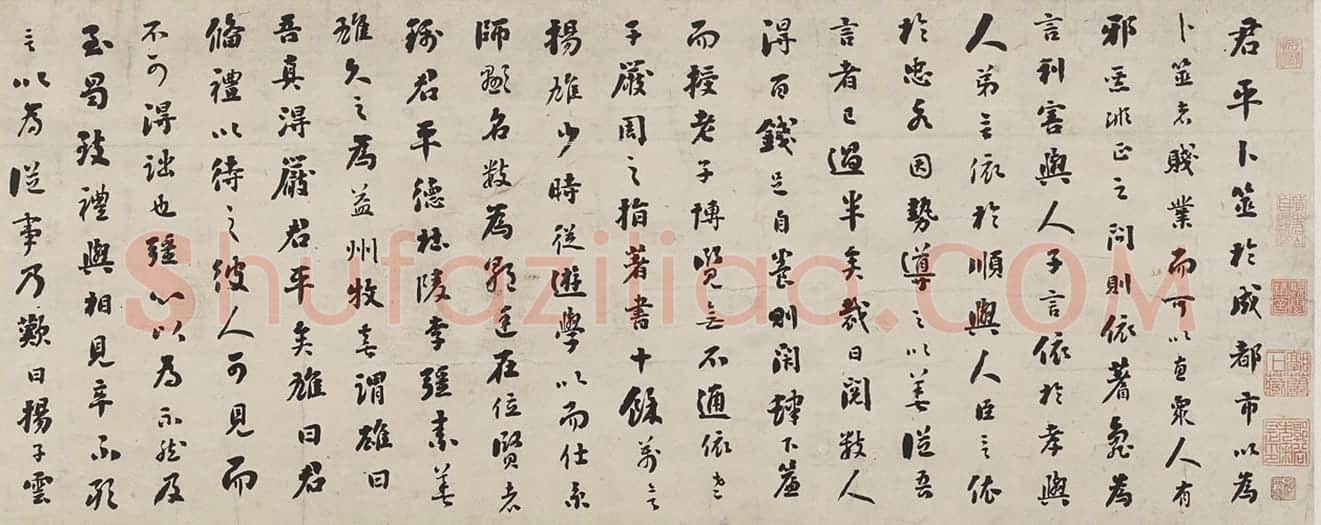 君平卜筮於成都市以為
卜筮者賤業而可以惠眾人有
邪惡非正之問則依蓍龜為
言利害與人子言依於孝與
人弟言依於順與人臣言依
於忠各因勢導之以善從吾
言者已過半矣裁日閱數人
得百錢足自養則閉肆下簾
而授老子博覽無不通依老
子嚴周之指著書十餘萬言
楊雄少時從遊學以而仕京
師顯名數為朝廷在位賢者
稱君平德杜陵李彊素善
雄久之為益州牧喜謂雄曰
吾真得嚴君平矣雄曰君
備禮以待之彼人可見而
不可得詘也彊心以為不然及
至蜀致禮與相見卒不敢
言以為從事乃歎曰楊子雲
Shufaziliao.COM